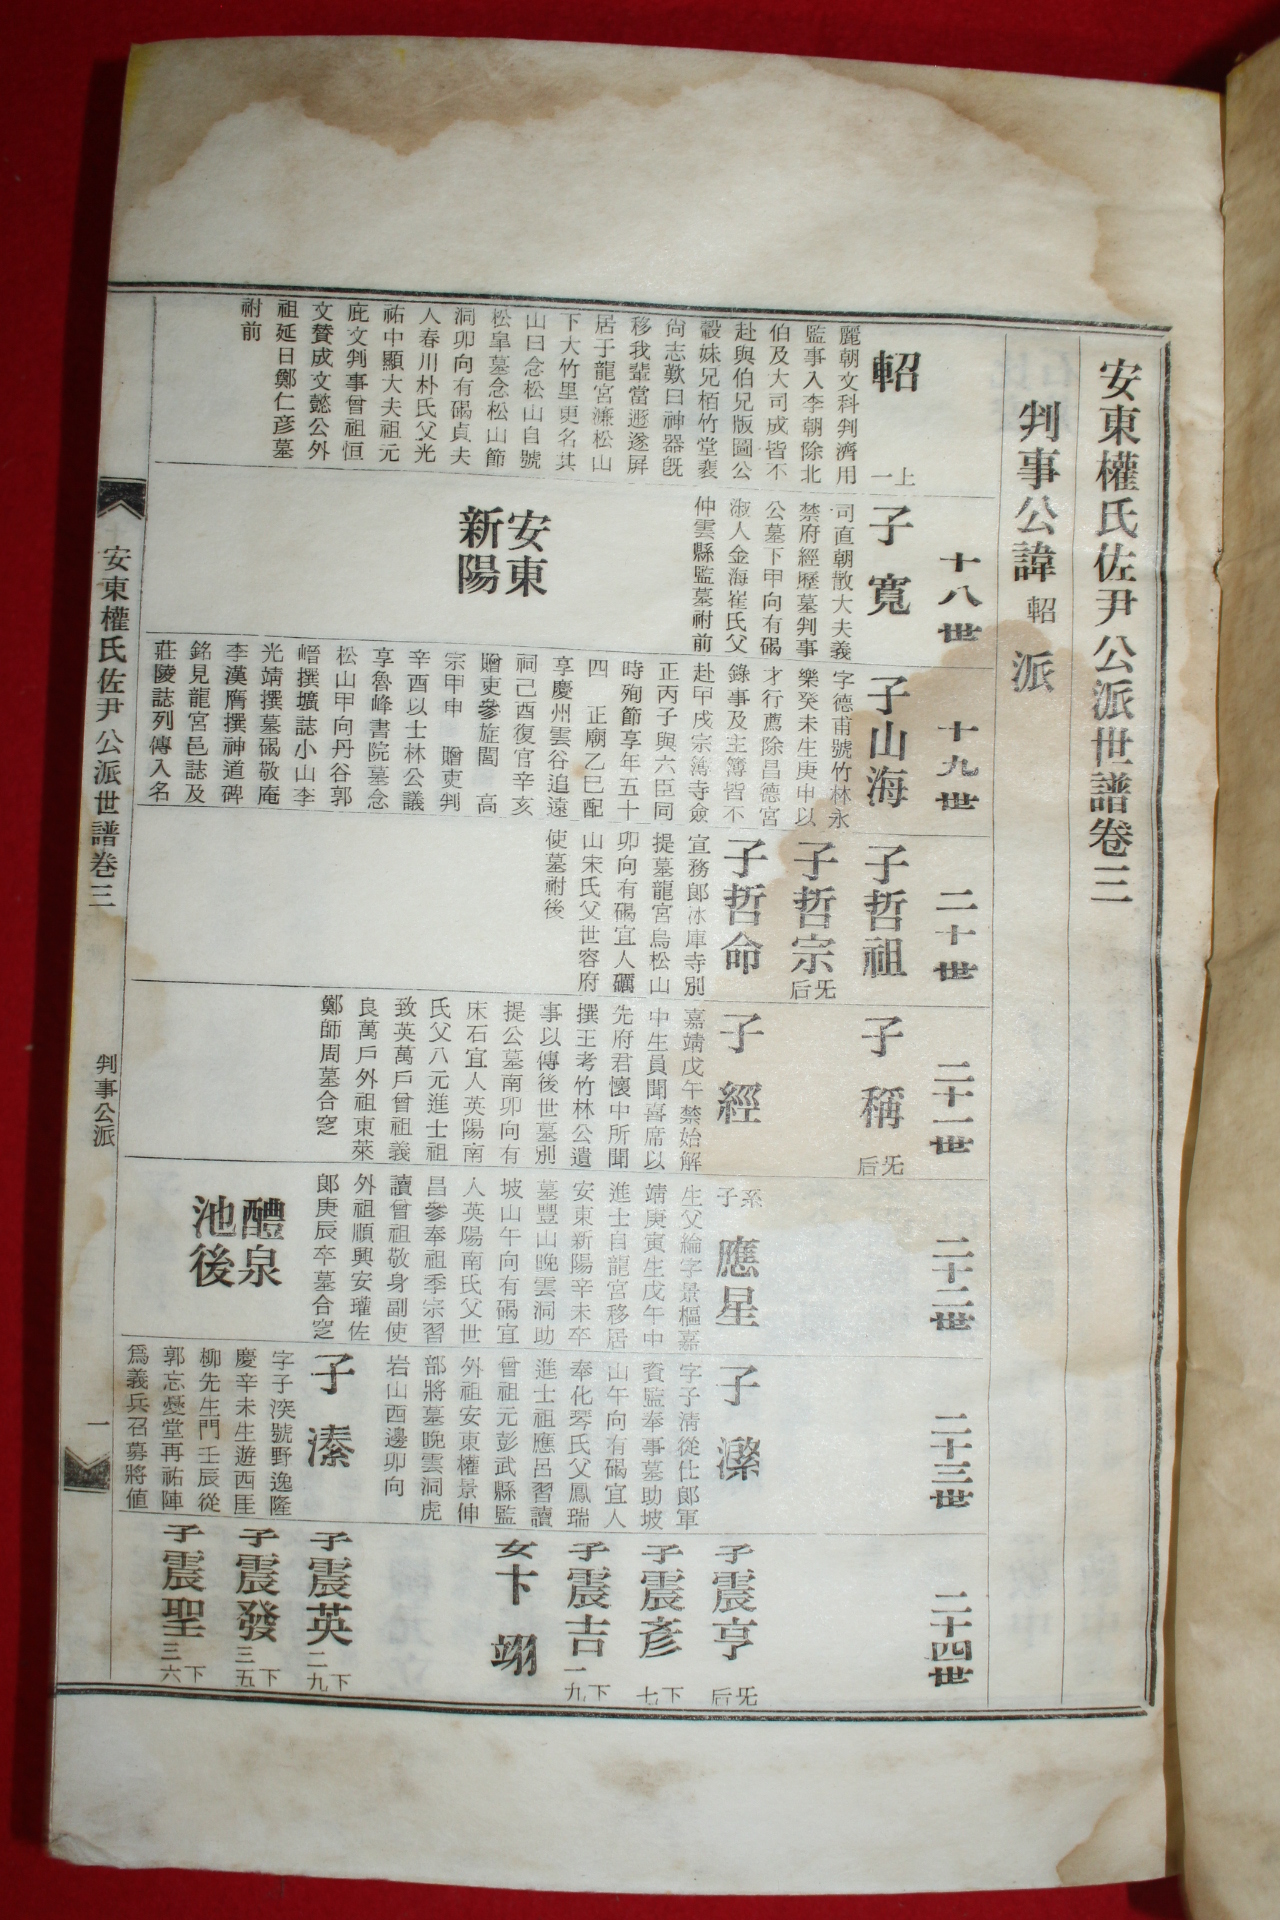 安東權氏佐尹公派世譜卷三
判事公諱軺派
軺
上一
麗朝文科判濟用
監事入李朝除北
伯及大司成皆不
赴與伯兄版圖公
毅妹兄栢竹堂裵
尙志歎曰神器旣
移我輩當遯遂屛
居于龍宮濂松山
下大竹里更名其
山曰念松山自號
松皐墓念松山節
洞卯向有碣貞夫
人春川朴氏父光
祐中顯大夫祖元
庇文判事曾祖恒
文贊成文懿公外
祖延日鄭仁彦墓
祔前
十八世
子寬
司直朝散大夫義
禁府經歷墓判事
公墓下甲向有碣
淑人金海崔氏父
仲雲縣監墓祔前
安東
新陽
十九世
子山海
字德甫號竹林永
樂癸未生庚申以
才行薦除昌德宮
錄事及主簿皆不
赴甲戌宗簿寺僉
正丙子與六臣同
時殉節享年五十
四 正廟乙巳配
享慶州雲谷追遠
祠己酉復官辛亥
贈吏參旌閭 高
宗甲申 贈吏判
辛酉以士林公議
享魯峰書院墓念
松山甲向丹谷郭
㟳撰壙誌小山李
光靖撰墓碣敬庵
李漢膺撰神道碑
銘見龍宮邑誌及
莊陵誌列傳入名
二十世
子哲祖
子哲宗
无后
子哲命
宜務郞氷庫寺別
提墓龍宮烏松山
卯向有碣宜人礪
山宋氏父世容府
使墓祔後
二十一世
子稱
无后
子經
嘉靖戊午禁始解
中生員聞喜席以
先府君懷中所聞
撰王考竹林公遺
事以傳後世墓別
提公墓南卯向有
床石宜人英陽南
氏父八元進士祖
致英萬戶曾祖義
良萬戶外祖東萊
鄭師周墓合窆
二十二世
系子應星
生父綸字景樞嘉
靖庚寅生戊午中
進士自龍宮移居
安東新陽辛未卒
墓豐山晩雲洞助
坡山午向有碣宜
人英陽南氏父世
昌參奉祖季宗習
讀曾祖敬身副使
外祖順興安瓘佐
郞庚辰卒墓合窆
醴泉
池後
二十三世
子濴
字子淸從仕郞軍
資監奉事墓助坡
山午向有碣宜人
奉化琴氏父鳳瑞
進士祖應呂習讀
曾祖元彭武縣監
外祖安東權景伸
部將墓晩雲洞虎
岩山酉邊卯向
子溸
字子渘號野逸隆
慶辛未生遊西厓
柳先生門壬辰從
郭忘憂堂再祐陣
爲義兵召募將値
二十四世
子震亨
无后
子震彥
下七
子震吉
下一九
女卞翊
子震英
下二九
子震發
下三五
子震聖
下三六
安東權氏佐尹公派世譜卷三
判事公派
一